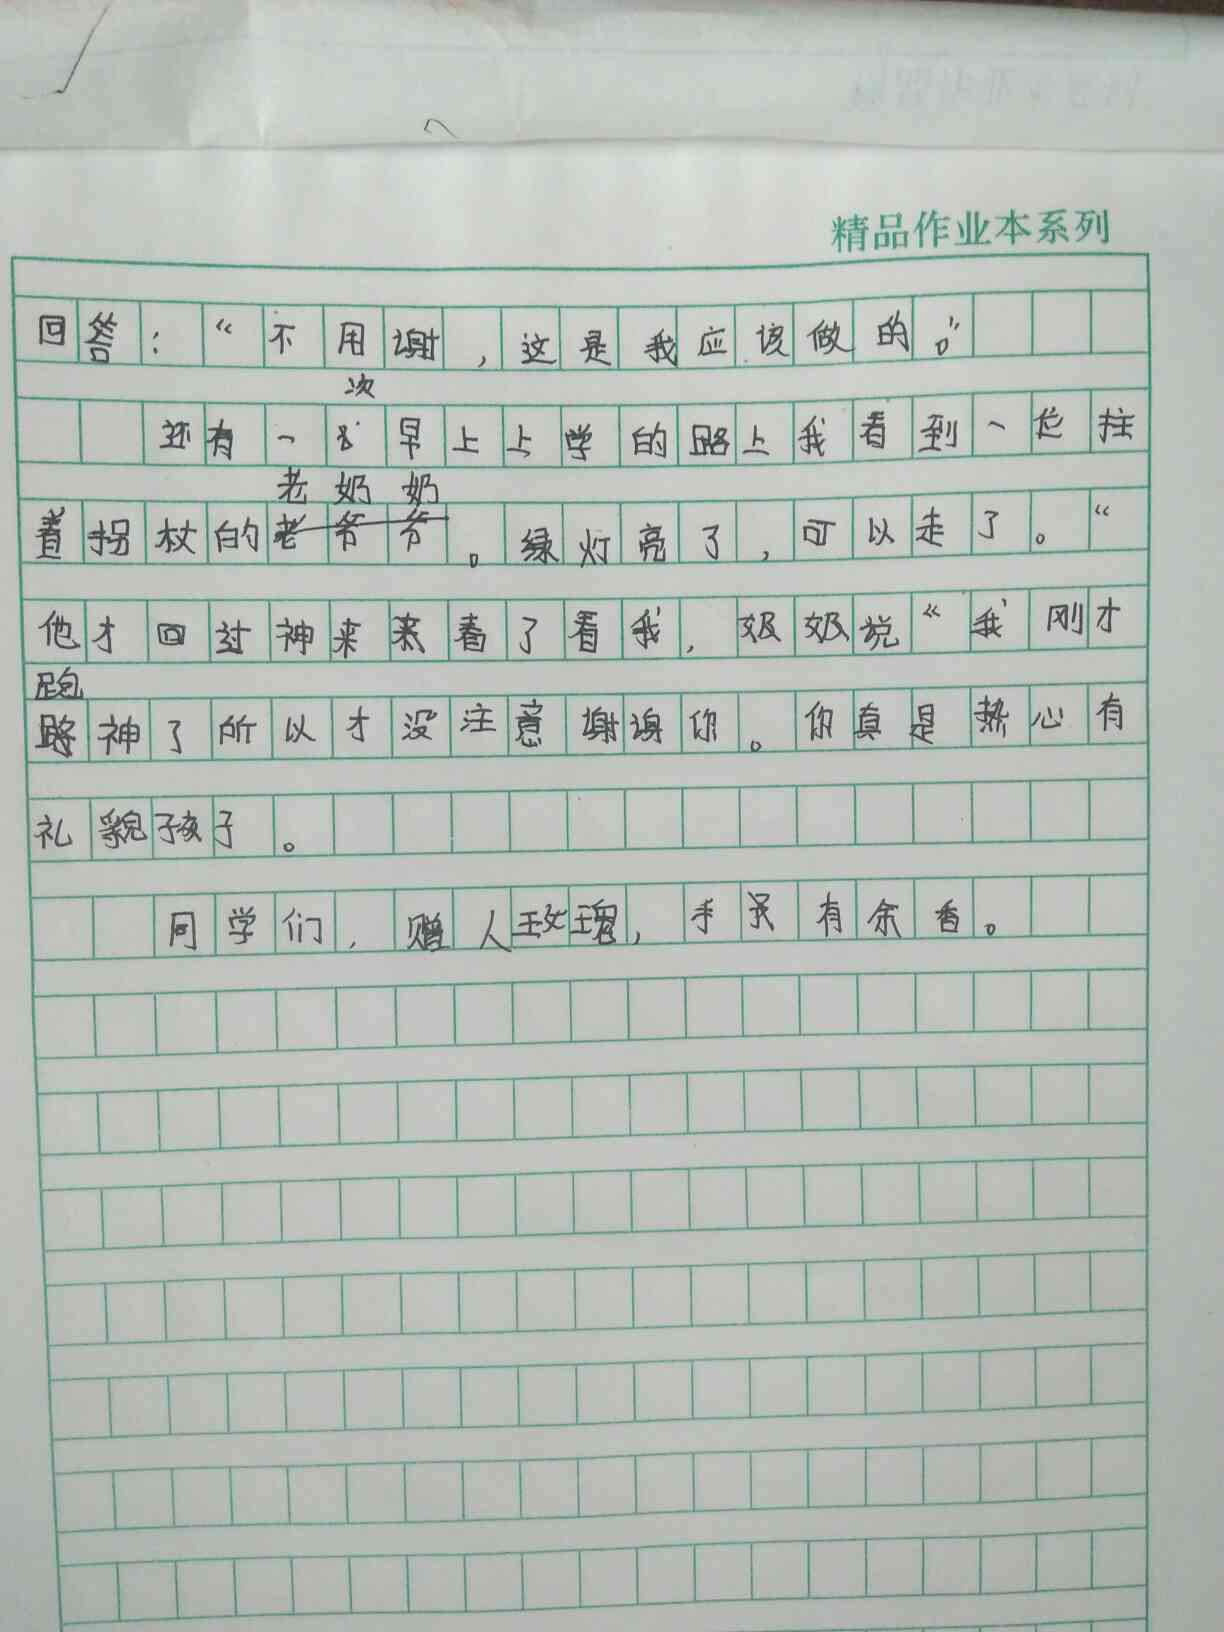 精品作业本系列
回答：“不用谢，这是我应该做的。”
次
还有一早上上学的路上我看到一位拄
老奶奶
着拐杖的老爷爷。绿灯亮了，可以走了。“
他才回过神来来看了看我，奶奶说“我刚才
跑
路神了所以才没注意谢谢你。你真是热心有
礼貌孩子。
同学们，赠人玫瑰，手予有余香。